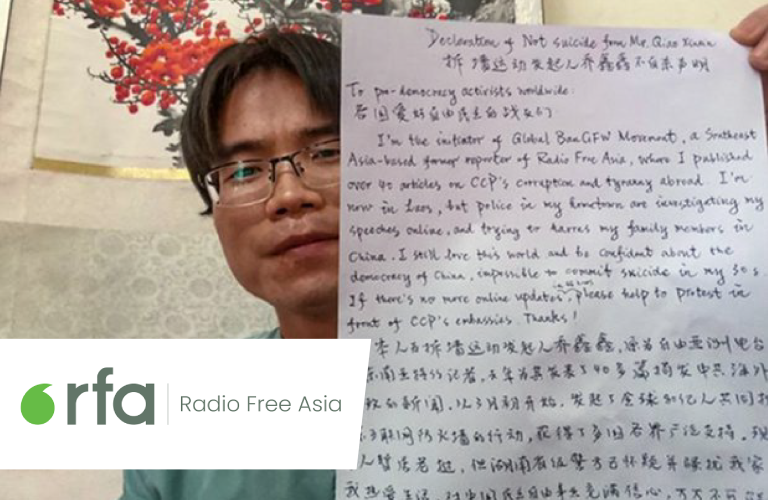 Declaration of Not suicide from Mr. Qiao Xinxin
拆墙运动发起人乔鑫鑫不自杀声明
To pro-democracy activists worldwide:
各国爱好自由民主的战友们
I'm the initiator of Global BanGFW Movement, a Southeast
Asia-based former reporter of Radio Free Asia, where I published
over 40 articles on CCP's corruption and tyranny abroad. I'm
now in Laos, but police in my hometown are investigating my
speeches online, and trying to harres my family members in
China. I still love this world and be confident about the
democracy of China, impossible to commit suicide in my 30s.
If there's no more online updates, please help to protest in
front of CCP's embassies. Thanks!
本人乃拆墙运动发起人乔鑫鑫,原为自由亚洲电台
东南亚特约记者,去年为其发表了40多篇揭发中共海外
的新闻,从3月初开始,发起了全球
互联网防火墙的行动,获得了多国各界广泛支持。现
人暂居老挝,但湖南省级警方已怀疑并骚扰我家
我热爱生活,对中国民主自由事业充满信心,
rfa
Radio Free Asia